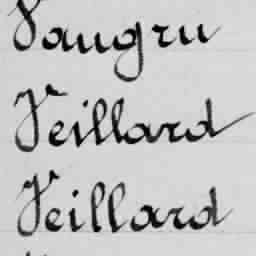 Vaugru
Veillard
Veillard